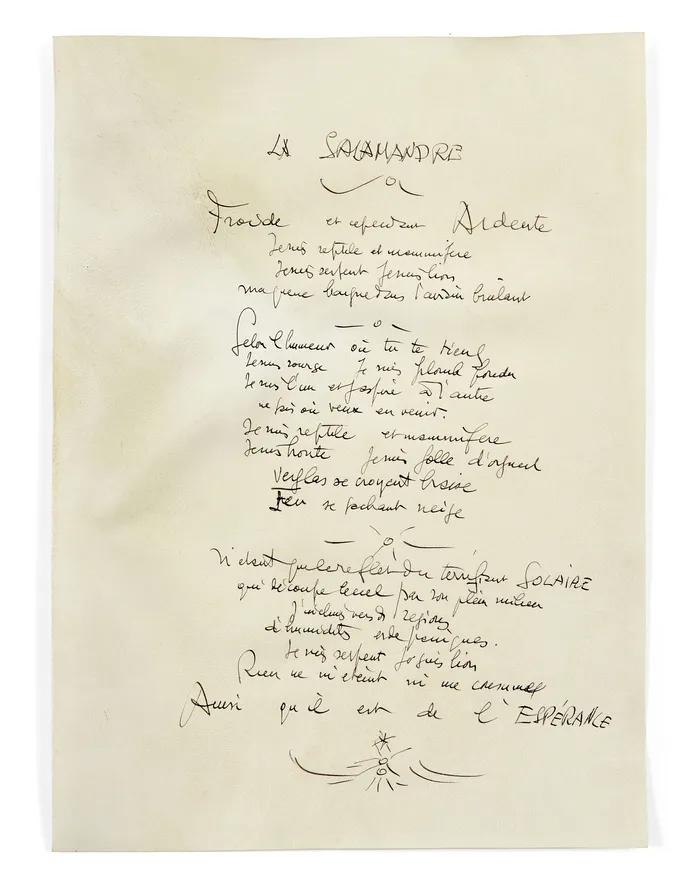 LA SALAMANDRE
Froide et cependant Ardente
Je suis reptile et mammifère
Je suis serpent Je suis lion
ma queue baigne dans l'airain brulant
Selon l'humeur où tu te tiens
Je suis rouge Je suis plomb fondu
Je suis l'un et j'aspire à l'autre
ne sais où veux en venir.
Je suis reptile et mammifère
Je suis honte Je suis folle d'orgueil
Verglas se croyant braise
Feu se sachant neige
N'étant que le reflet du terrifiant SOLAIRE
qui découpe le ciel par son plein milieu
J'incline vers des régions
d'humidités et de paniques.
Je suis serpent Je suis lion
Rien ne m'éteint ni me consume
Ainsi qu'il est de l'ESPÉRANCE